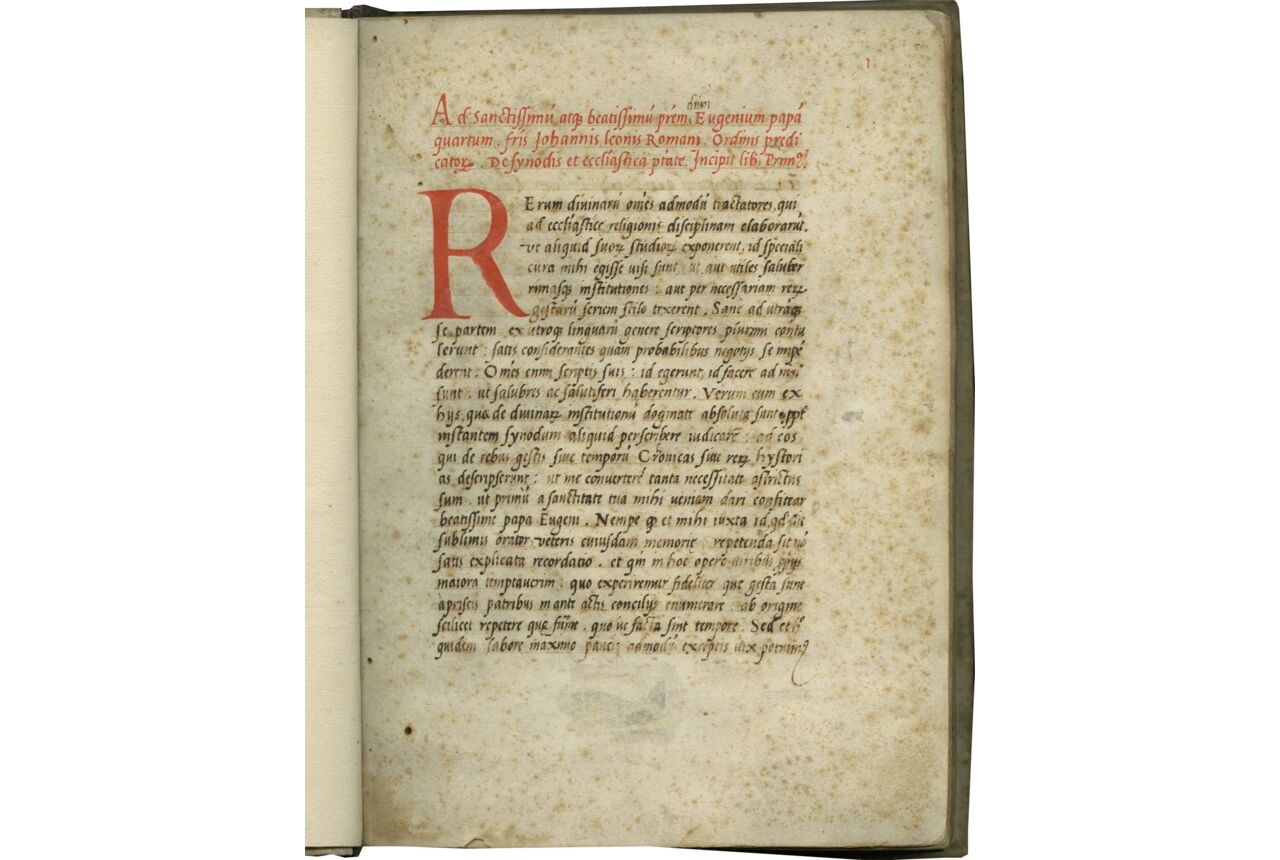 1
Ad Sanctissimū atqꝫ beatissimū prēm dnm̄ Eugenium papā
quartum. frīs Johannis leonis Romani. Ordinis predi
catoꝝ. De synodis et eccl̄iastica ptāte. Incipit lib. Primꝰ.
Rerum diuinarū om̄es admodū tractatores, qui
ad eccl̄iastice religionis disciplinam elaborarūt.
ut aliquid suoꝝ studioꝝ exponerent, id speciali
cura mihi egisse uisi sunt, ut aut utiles saluber
rimasqꝫ institutiones: aut per necessariam reꝝ
gestarū seriem stilo texerent. Sane ad utraqꝫ
se partem ex utroqꝫ linguarū genere scriptores plurimi contu
lerunt: satis considerantes quam probabilibus negotijs se impē
derent. Om̄es enim scriptis suis: id egerunt, id facere ad
sunt. ut salubres ac salutiferi haberentur. Verum cum ex
hijs, que de diuinaꝝ institutionū dogmate absoluta sunt, ppt̄
instantem synodum aliquid perscribere iudicarē: ad eos
qui de rebus gestis siue temporū Cronicas siue reꝝ hystori
as descripserunt: ut me converterē tanta necessitate astrictus
sum. ut primū a sanctitate tua mihi ueniam dari confitear
beatissime papa Eugeni. Nempe qꝫ et mihi iuxta id, qd̄ ait
sublimis orator, veteris cuiusdam memorię, repetenda sit nō
satis explicata recordatio. et qm̄ in hoc opere uiribus ppijs
maiora temptauerim: quo experiremur fideliter que gesta sunt
a priscis patribus in ante actis concilijs enumerare: ab origine
scilicet repetere que fuīe. quo ue facta sint tempore. Sed et
quidem labore maximo paucis admodū exceptis uix potuimꝰ